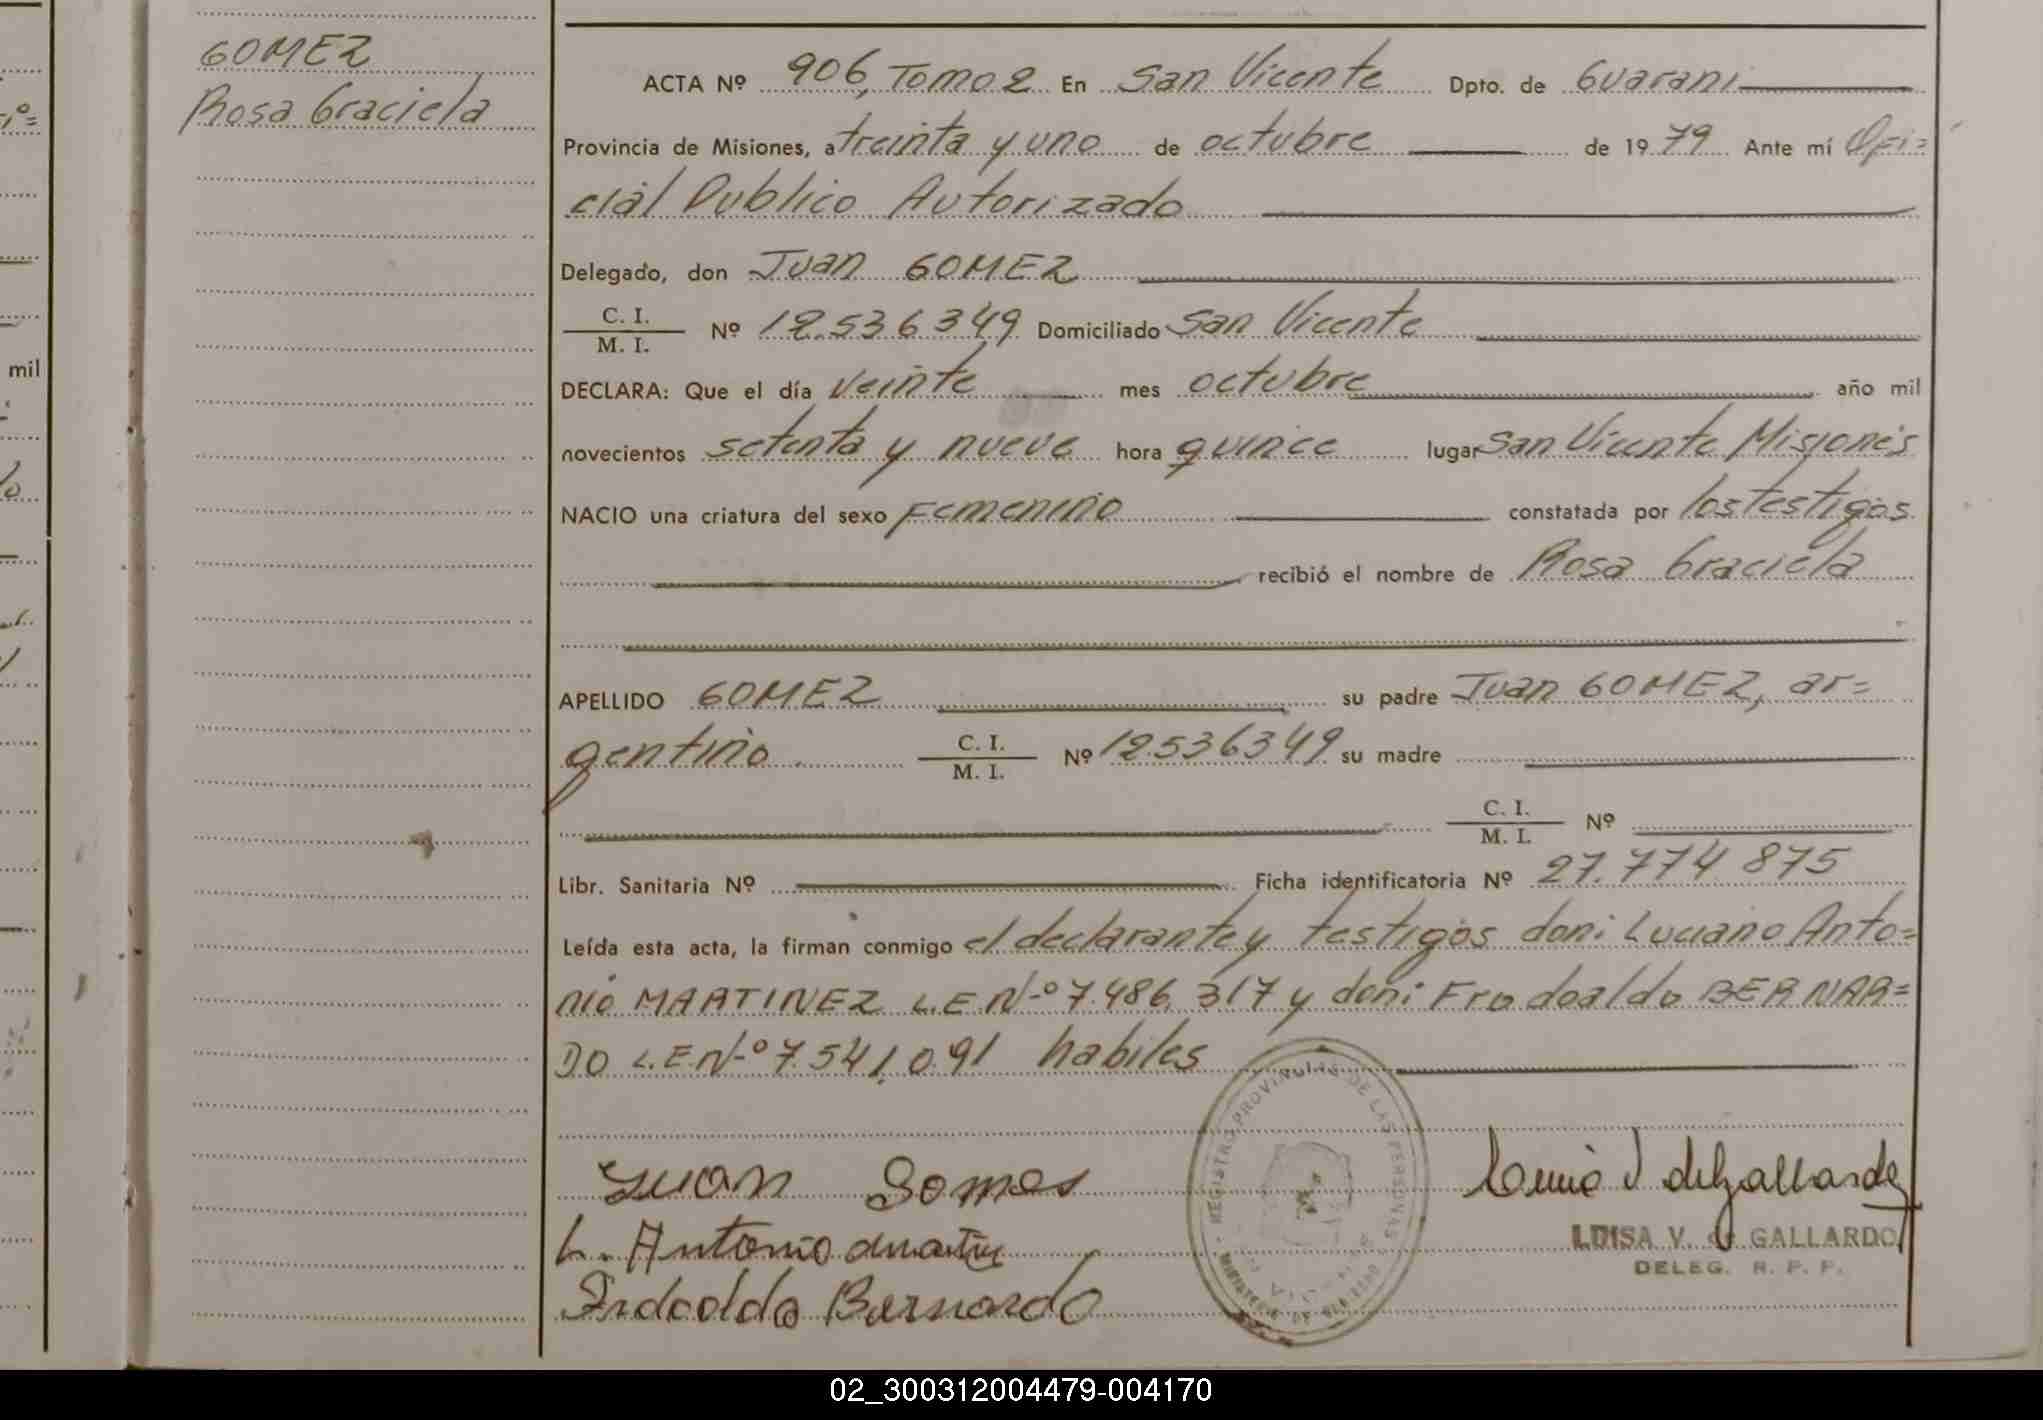 GOMEZ
Rosa Graciela
ACTA Nº 906, Tomo 2 En San Vicente Dpto. de Guarani
Provincia de Misiones, a treinta y uno de octubre de 1979 Ante mí Ofi=
cial Publico Autorizado
Delegado, don Juan GOMEZ
C. I.
M. I. Nº 12.536.349 Domiciliado San Vicente
DECLARA: Que el día veinte mes octubre año mil
novecientos setenta y nueve hora quince lugar San Vicente Misiones
NACIO una criatura del sexo Femenino constatada por los testigos
recibió el nombre de Rosa Graciela
APELLIDO GOMEZ su padre Juan GOMEZ, ar=
gentino. C. I.
M. I. Nº 12.536349 su madre
C. I.
M. I. Nº
Libr. Sanitaria Nº Ficha identificatoria Nº 27.774 875
Leída esta acta, la firman conmigo el declarante y testigos don: Luciano Anto=
nio MARTINEZ L.E.Nº 7.486.317 y don: Frodoaldo BERNAR=
DO L.E.Nº 7.541.091 habiles
REGISTRO PROVINCIAL DE LAS PERSONAS
Juan Gomes
L. Antonio
Bernardo
de Gallardo
LUISA V. de GALLARDO
DELEG. R. P. P.
mil
02_300312004479-004170